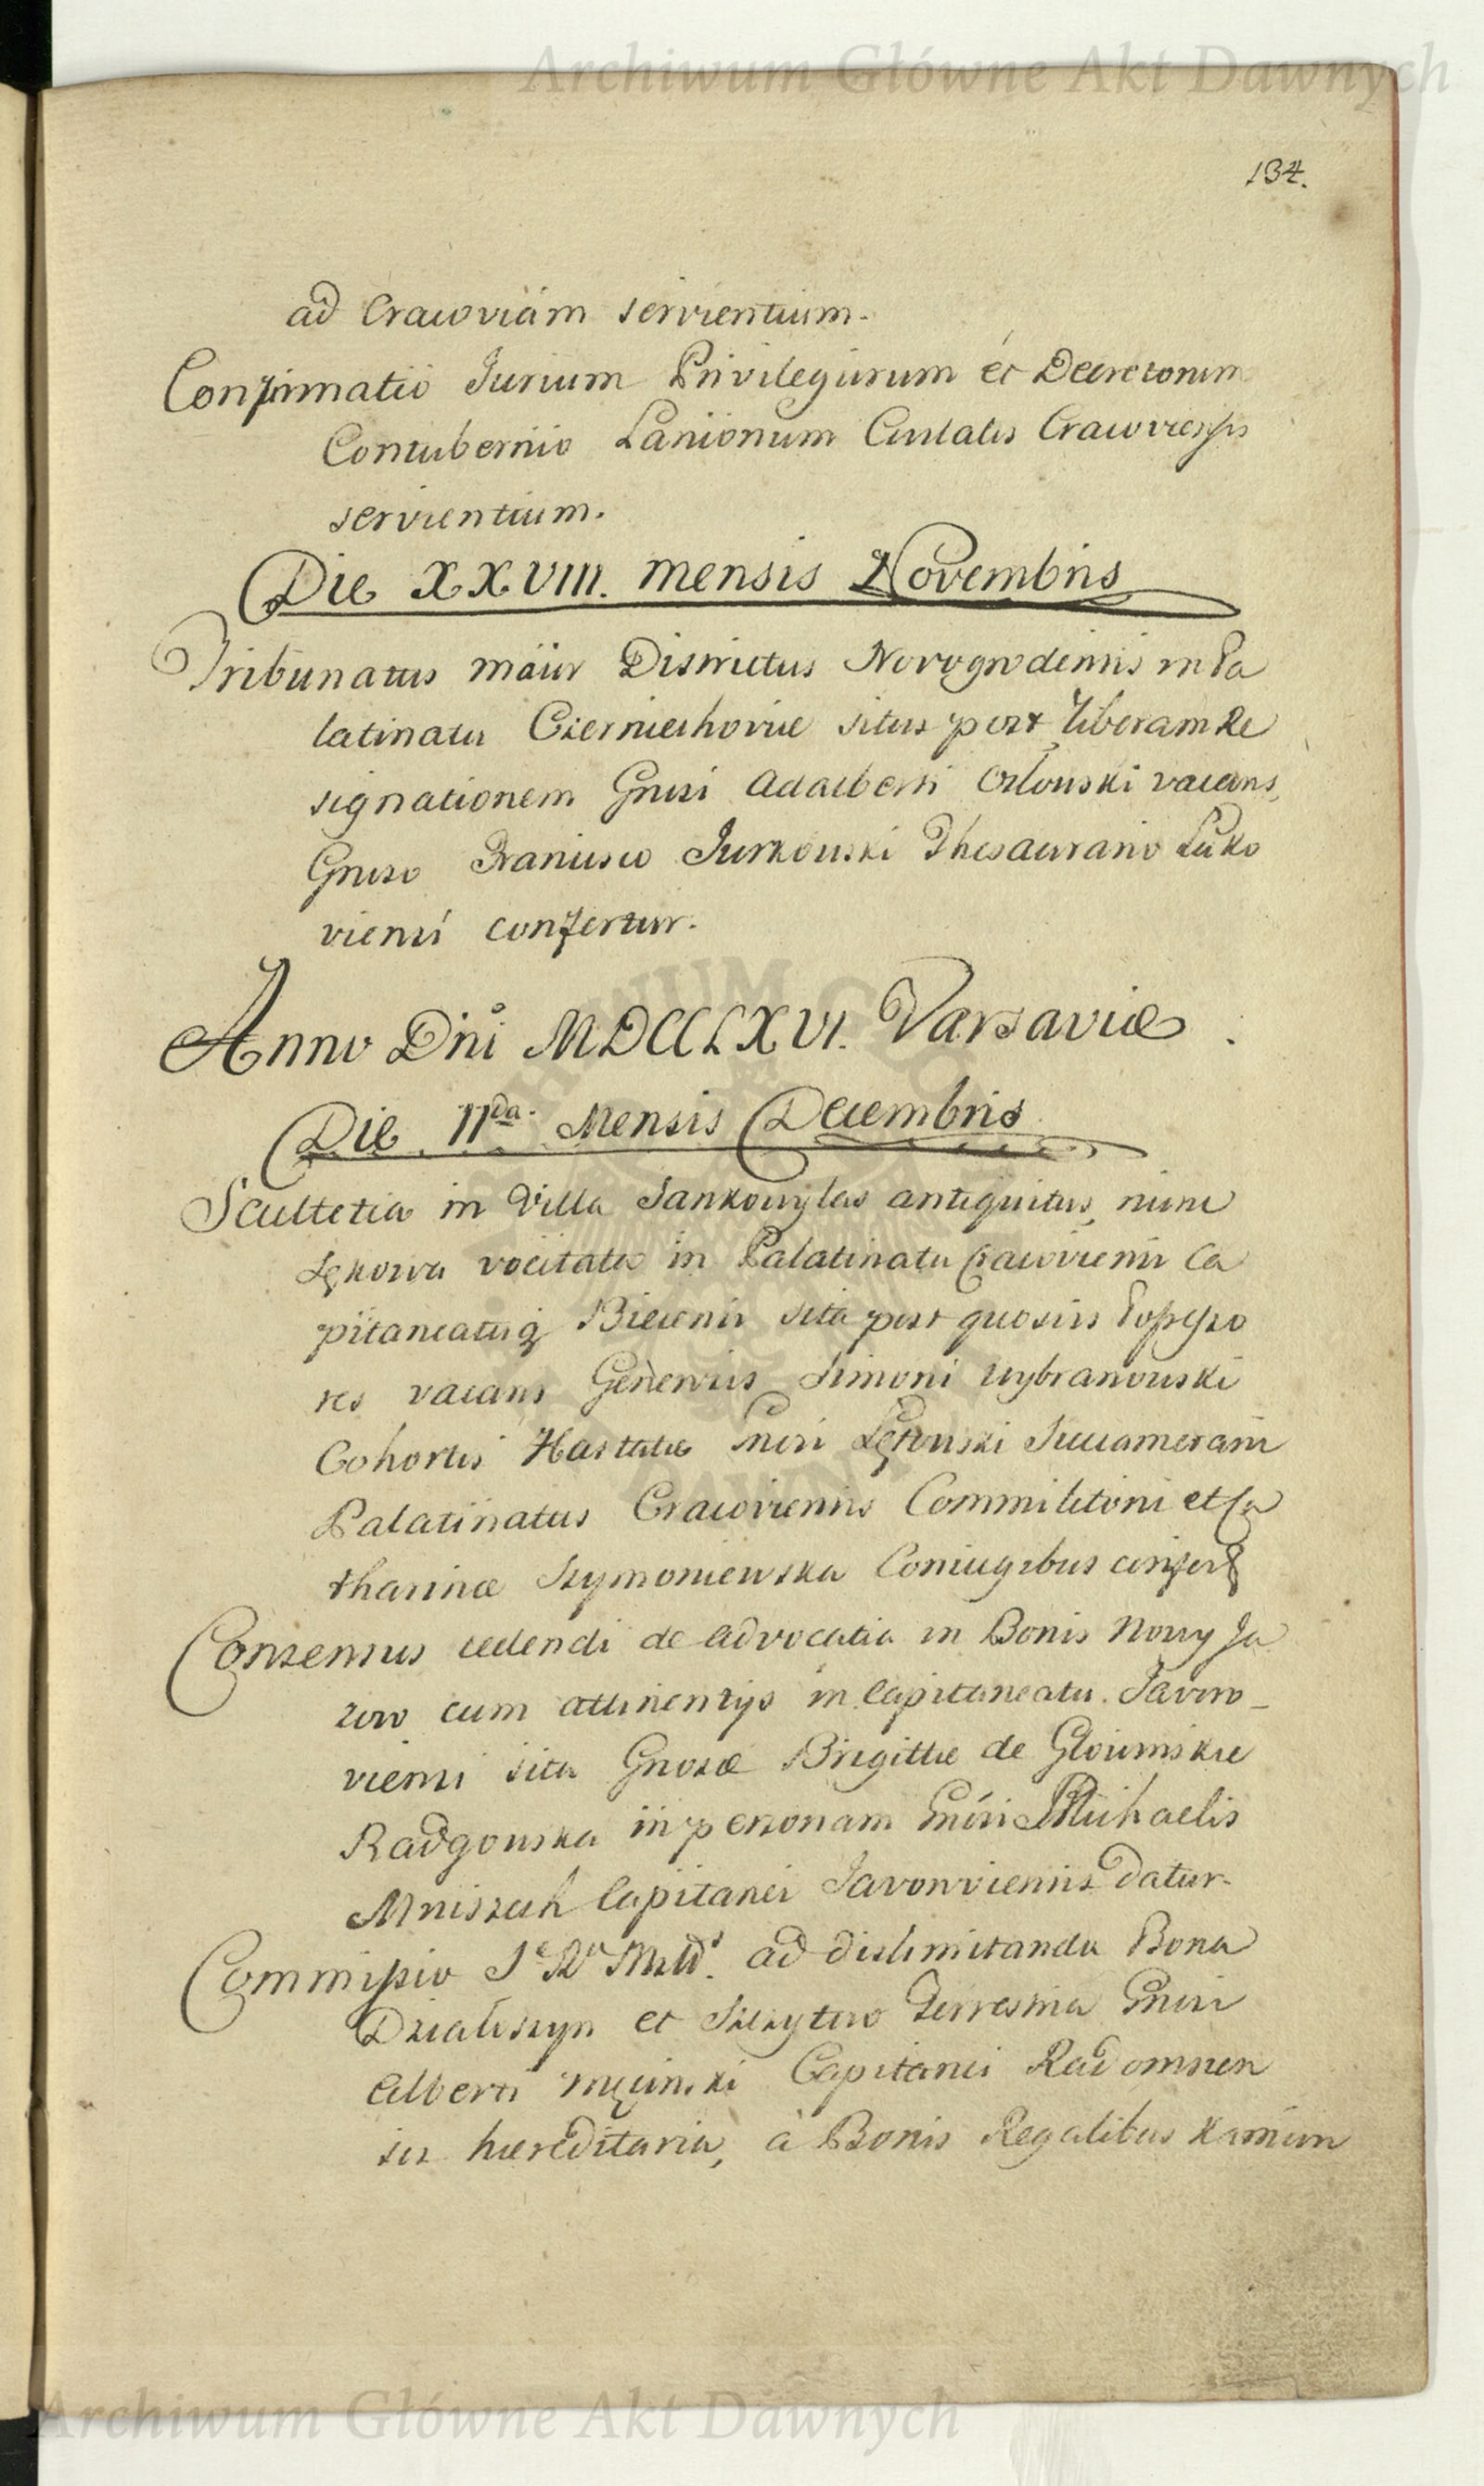 Archiwum Główne Akt Dawnych
134.
ad Cracoviam servientium.
Confirmatio Jurium Privilegiorum et Decretorum
Contubernio Lanionum Civitatis Cracoviensis
servientium.
Die XXVIII. mensis Novembris
Tribunatus maior Districtus Novogrodensis in Pa
latinatu Czerniechoviae situs post liberam Re
signationem Gnosi Adalberti Orlowski vacans,
Gnoso Francisco Jurkowski Thesaurario Luko
viensi confertur.
Anno Dni MDCCLXVI. Varsaviae
Die IIda. Mensis Decembris
Scultetia in Villa Jankowylas antiquitus, nunc
Lękowa vocitata in Palatinatu Cracoviensi Ca
pitaneatuq Biecensi sita post quosvis Possesso
res vacans Generosis Simoni Wybranowski
Cohortis Hastatae Gnosi Łętowski Succamerarii
Palatinatus Cracoviensis Commilitoni et Ca
tharinae Szymoniewska Coniugibus confert
Consensus cedendi de advocatia in Bonis Nowy Ja
zow cum attinentijs in Capitaneatu Javoro-
viensi sita Gnosae Brigittae de Głowinskie
Radgowska in personam Gnosi Michaelis
Mniszech Capitanei Javoroviensis datur.
Commissio S. R. Mttis. ad dislimitanda Bona
Działoszyn et Szczyty Terrestria Gnosi
Alberti Męcinski Capitanei Radomscen
sis haereditaria, à Bonis Regalibus Kamion
Archiwum Główne Akt Dawnych